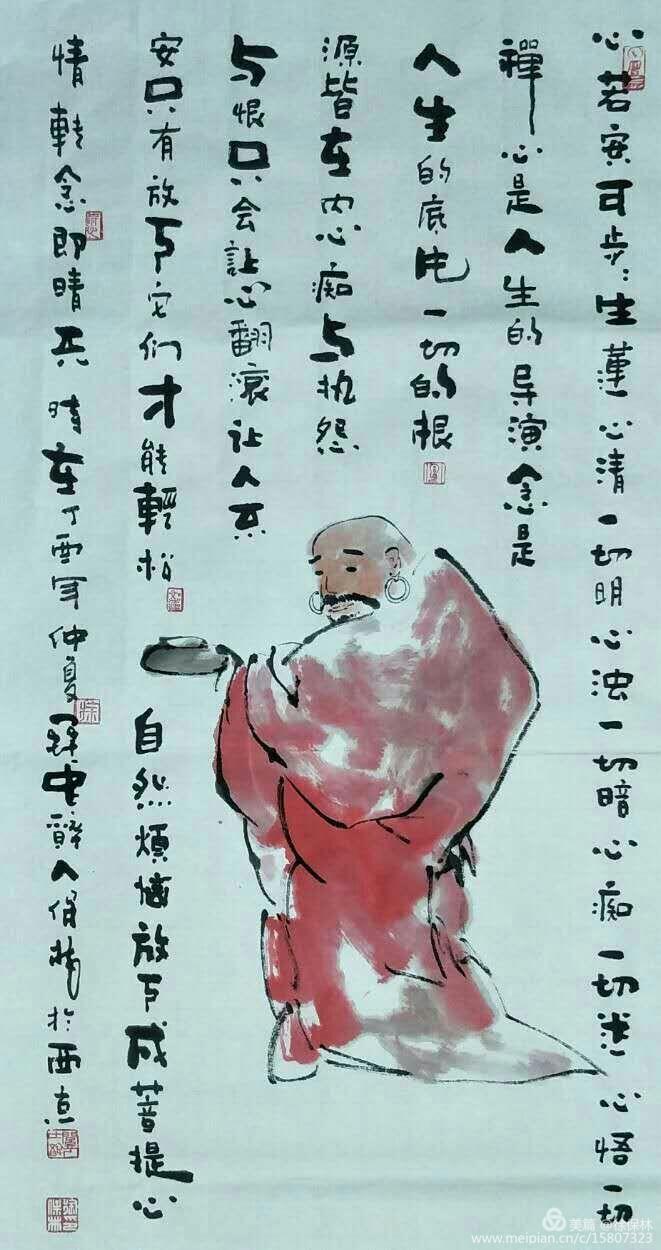 心若安可步:生蓮心清一切明心浊一切暗心痴一切迷心悟一切
禪心是人生的导演念是
人生的底片一切的根
源皆在内心痴与执怨
与恨只会让心翻滚让人不
安只有放下它们才能輕松
自然煩惱放下成菩提心
情轉念即晴天 時在丁酉年仲夏 中醉人保林於西京
美篇 @徐保林
www.meipian.cn/c/15807323